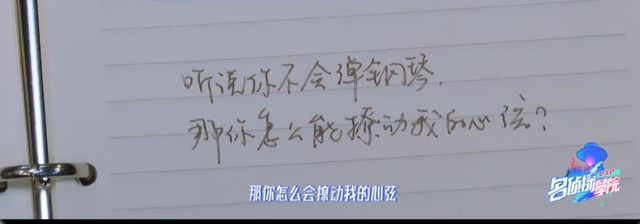 听说你不会弹钢琴.
那你怎么能撩动我的心弦?
那你怎么会撩动我的心弦
名侦探學院